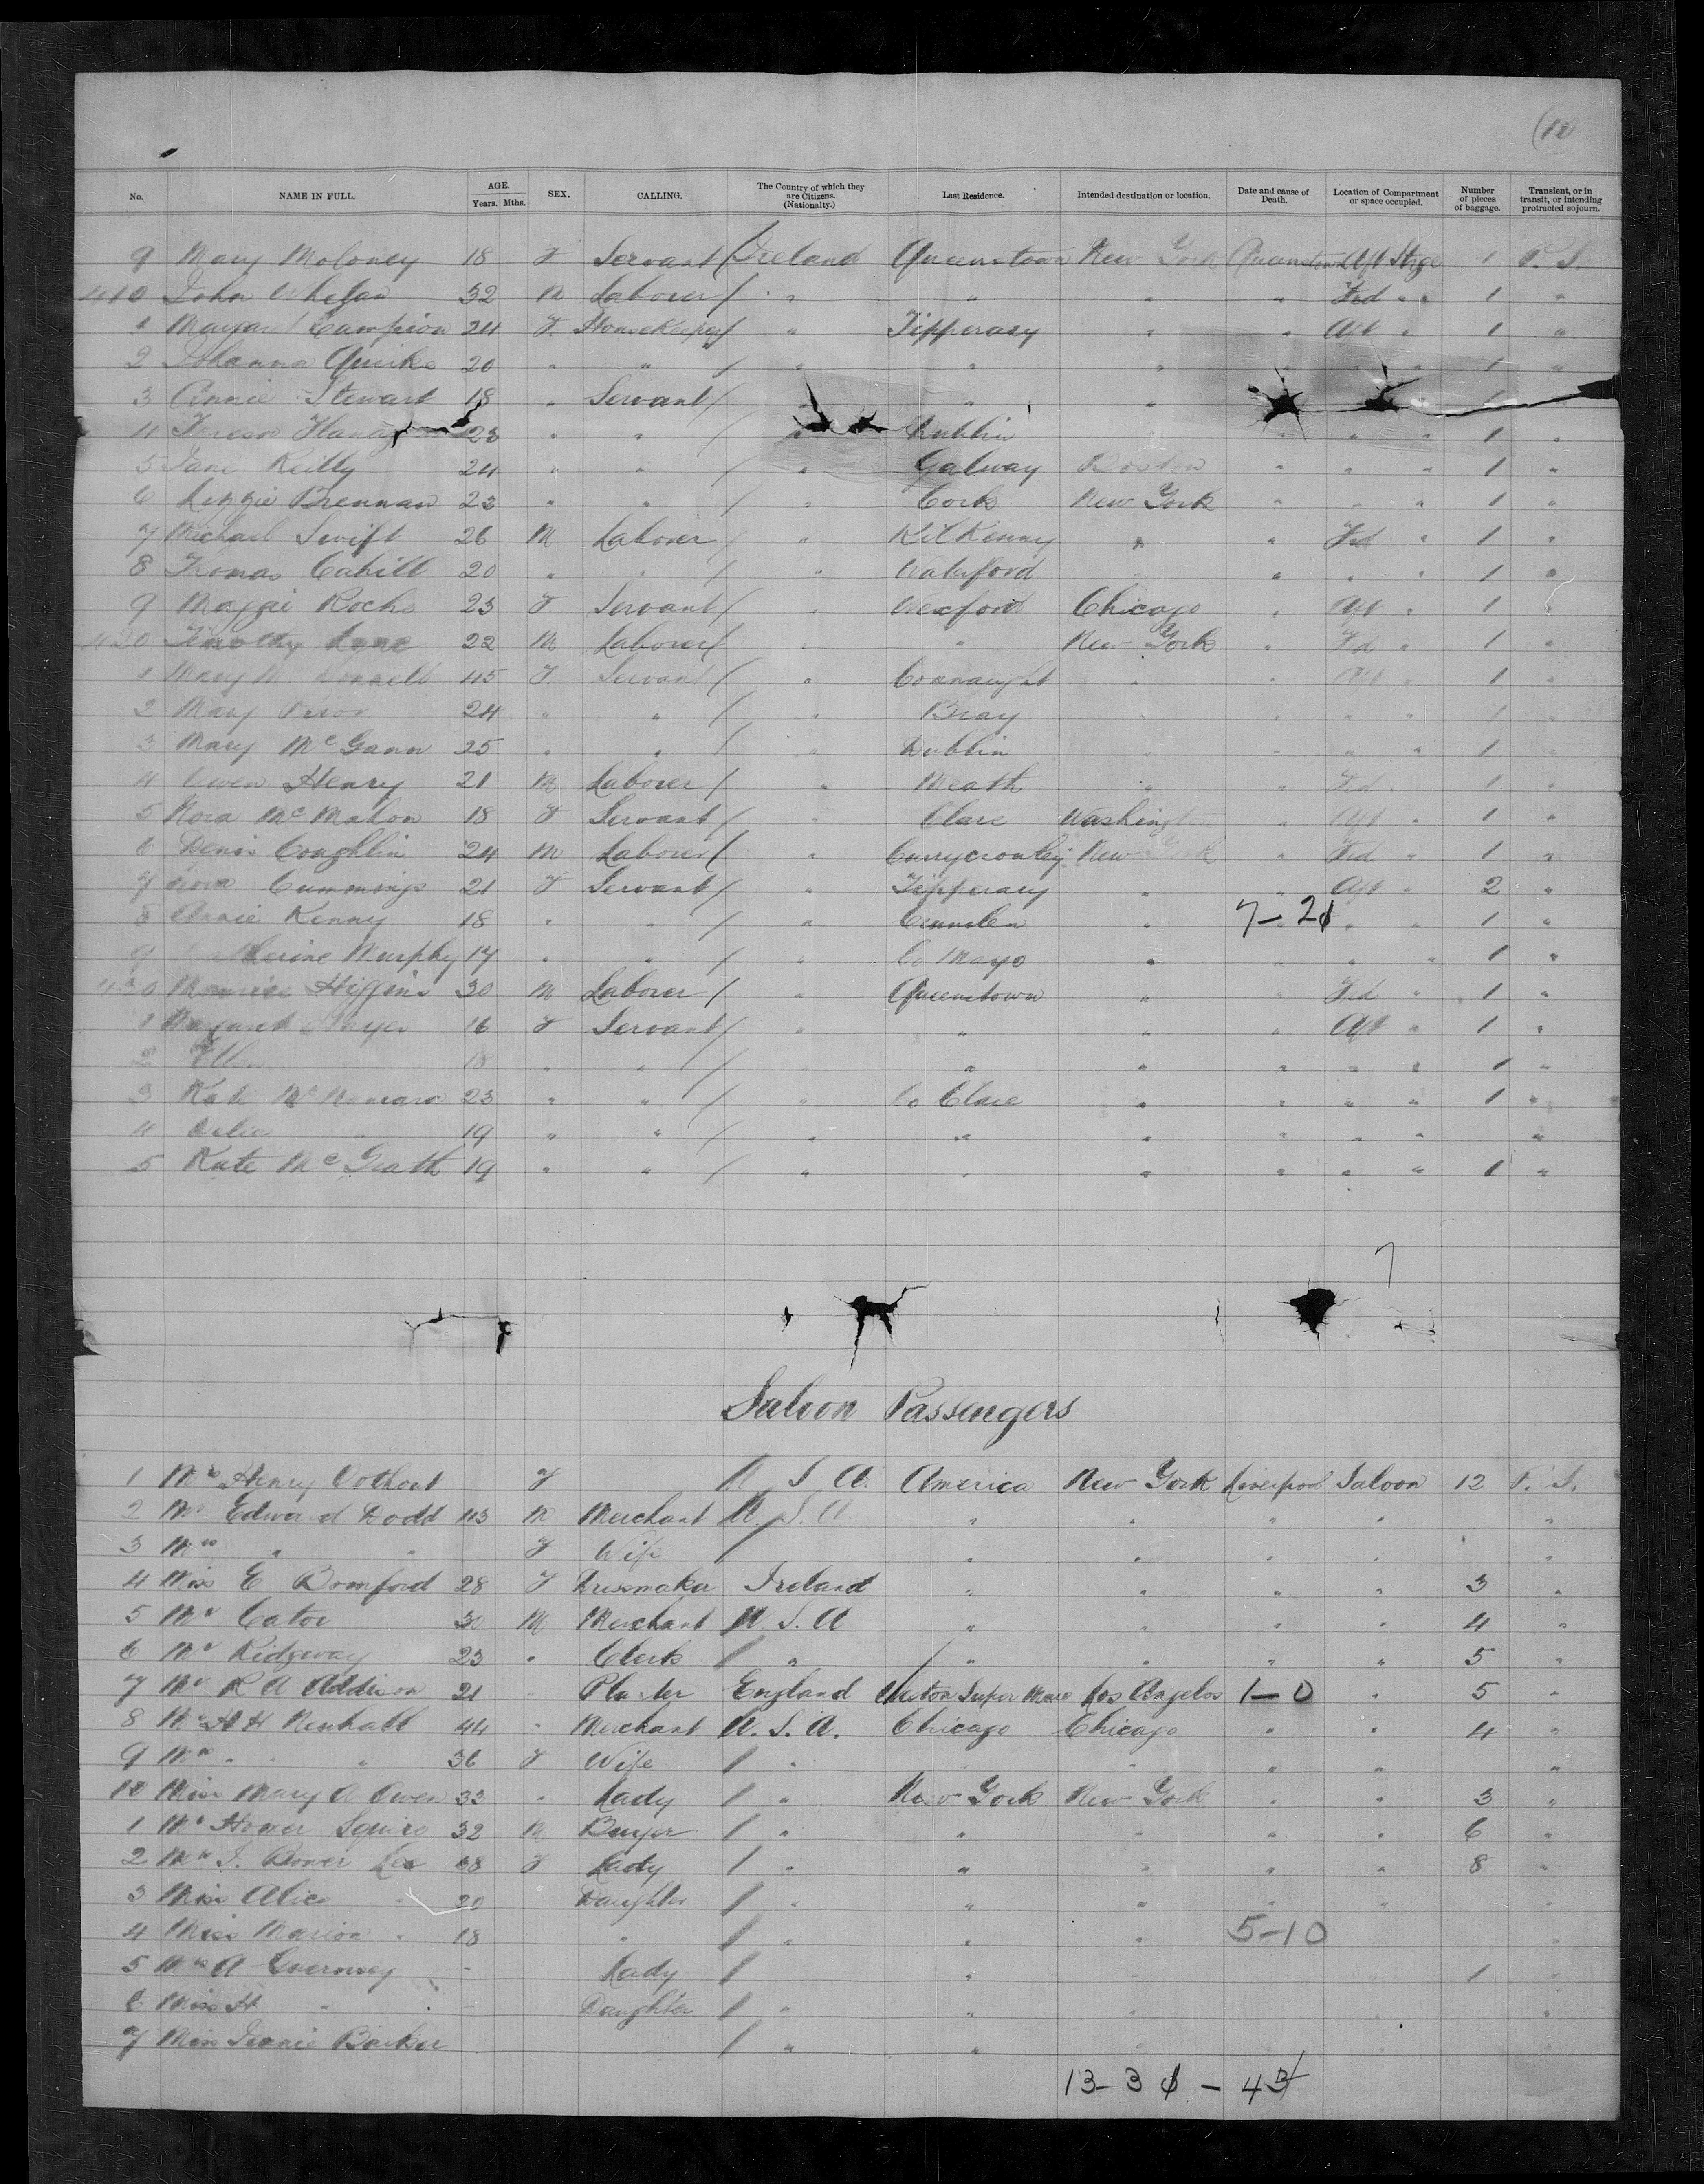 (10
No. NAME IN FULL. AGE. Years. Mths. SEX. CALLING. The Country of which they are Citizens. (Nationalty.) Last Residence. Intended destination or location. Date and cause of Death. Location of Compartment or space occupied. Number of pieces of baggage. Transient, or in transit, or intending protracted sojourn.
9 Mary Moloney 18 F Servant / Ireland Queenstown New York Queenstown Aft Stge 1 P. S.
410 John Whelan 32 M Laborer / " " " " Fwd " " 1 "
1 Margaret Campion 24 F. Housekeeper / " Tipperary " " Aft " 1 "
2 Johanna Quirke 20 " " / " " " " " 1 "
3 Annie Stewart 18 " Servant / " " 1
4 Teresa 23 " " / " Dublin " " " 1 "
5 Jane Reilly 24 " " / " Galway Boston " " " 1 "
6 Lizzie Brennan 23 " " / " Cork New York " " " 1 "
7 Michael Swift 26 M Laborer / " Kilkenny " " Fwd " 1 "
8 Thomas Cahill 20 " " / " Waterford " " " " 1 "
9 Maggie Roche 23 F Servant / " Wexford Chicago " Aft " 1 "
420 Timothy Lyne 22 M Laborer / " " New York " Fwd " 1 "
1 Mary 45 F. Servant / " Connaught " " Aft " 1 "
2 Mary 24 " " / " Bray " " " " 1 "
3 Mary McGann 25 " " / " Dublin " " " " 1 "
4 Owen Henry 21 M Laborer / " Meath " " Fwd " 1 "
5 Nora McMahon 18 F Servant / " Clare Washington " Aft " 1 "
6 Denis Coughlin 24 M Laborer / " New York " Fwd " 1 "
7 Cummings 21 F Servant / " Tipperary " " Aft " 2 "
8 Annie Kenny 18 " " / " " 7-21 " " 1 "
9 Murphy 17 " " / " Co Mayo " " " " 1 "
430 Maurice Higgins 30 M Laborer / " Queenstown " " Fwd " 1 "
1 Margaret 16 F Servant / " " " " Aft " 1 "
2 18 " " / " " " " " " 1 "
3 Kate McNamara 23 " " / " Co Clare " " " " 1 "
4 Delia " 19 " " / " " " " " " "
5 Kate McGrath 19 " " / " " " " " " 1 "
7
Saloon Passengers
1 Mrs Henry Oothout F U S A. America New York Liverpool Saloon 12 P. S.
2 Mr Edward Dodd 43 M Merchant U. S. A. " " " " "
3 Mrs " " F Wife / " " " " "
4 Miss E Bomford 28 F Dressmaker Ireland " " " " 3 "
5 Mr Cator 30 M Merchant U. S. A " " " " 4 "
6 Mr Ridgway 23 " Clerk / " / " " " " 5 "
7 Mr R A Addison 21 " Planter England Weston Super Mare Los Angelos 1-0 " 5 "
8 Mr H H 44 " Merchant U. S. A. Chicago Chicago " " 4 "
9 Mrs " " 36 F Wife / " " " " "
10 Miss Mary A Owen 33 " Lady / " New York New York " " 3 "
1 Mr Homer Squire 32 M Buyer / " " " " " 6 "
2 Mrs J. Bower Lee 48 F Lady / " " " " " 8 "
3 Miss Alice " 20 Daughter / " " " " " "
4 Miss Marion " 18 " / " " " 5-10 "
5 Mrs A - Lady / " " 1 "
6 Miss H " - Daughter / " " " "
7 Miss Jennie Barker / " " " "
13-31-43